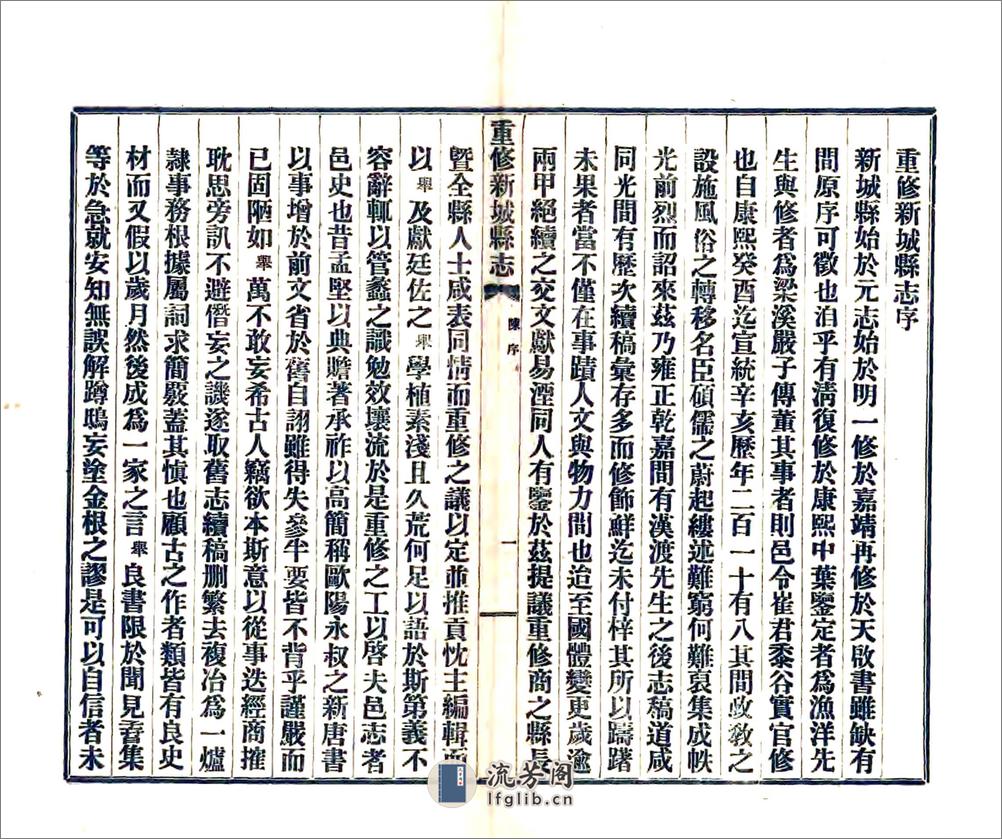 重修新城縣志序
新城縣始於元志始於明一修於嘉靖再修於天啟書雖缺有
間原序可徵也洎乎有淸復修於康熙中葉鑒定者爲漁洋先
生與修者爲梁溪嚴子傳董其事者則邑令崔君黍谷實官修
也自康熙癸酉迄宣統辛亥歷年二百一十有八其間政敎之
設施風俗之轉移名臣碩儒之蔚起縷述難窮何難裒集成帙
光前烈而詔來茲乃雍正乾嘉間有漢渡先生之後志稿道咸
同光間有歷次續稿彙存多而修飾鮮迄未付梓其所以躊躇
未果者當不僅在事蹟人文與物力間也迨至國體變更歲逾
兩甲絕續之交文獻易湮同人有鑒於茲提議重修商之縣長
重修新城縣志
陳序
一
曁全縣人士咸表同情而重修之議以定並推貢忱主編輯而
以舉及獻廷佐之舉學植素淺且久荒何足以語於斯第義不
容辭輒以管蠡之識勉效壤流於是重修之工以啓夫邑志者
邑史也昔孟堅以典贍著承祚以高簡稱歐陽永叔之新唐書
以事增於前文省於舊自詡雖得失參半要皆不背乎謹嚴而
已固陋如舉萬不敢妄希古人竊欲本斯意以從事迭經商搉
耽思旁訊不避僭妄之譏遂取舊志續稿刪繁去複冶爲一爐
隸事務根據屬詞求簡覈蓋其愼也顧古之作者類皆有良史
材而又假以歲月然後成爲一家之言舉良書限於聞見耆集
等於急就安知無誤解蹲鴟妄塗金根之謬是可以自信者未
流芳阁
lfglib.cn